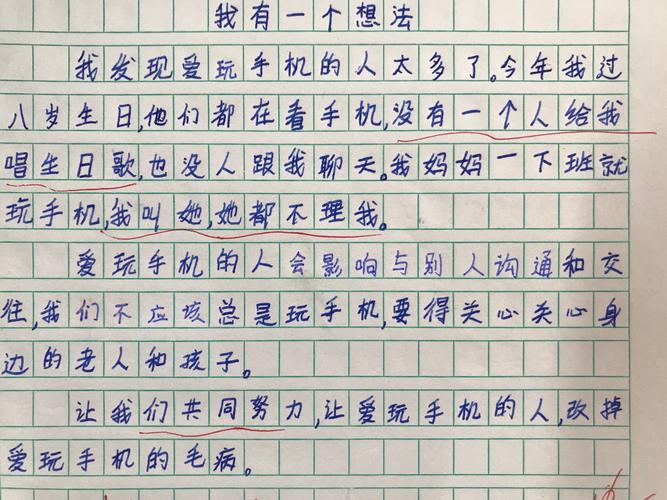 我有一个想法
我发现爱玩手机的人太多了。今年我过
八岁生日,他们都在看手机,没有一个人给我
唱生日歌,也没人跟我聊天。我妈妈一下班就
玩手机,我叫她,她都不理我。
爱玩手机的人会影响与别人沟通和交
往,我们不应该总是玩手机,要得关心关心身
边的老人和孩子。
让我们共同努力,让爱玩手机的人,改掉
爱玩手机的毛病。